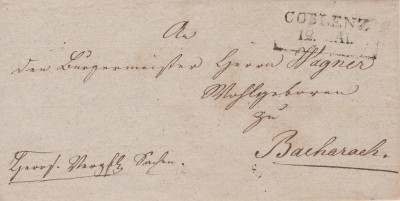 An
COBLENZ
12. MAI.
den Bürgermeister Herrn Wagner
Wohlgeboren
zu
Bacharach.
Herrs. Verpfl. Sachen.